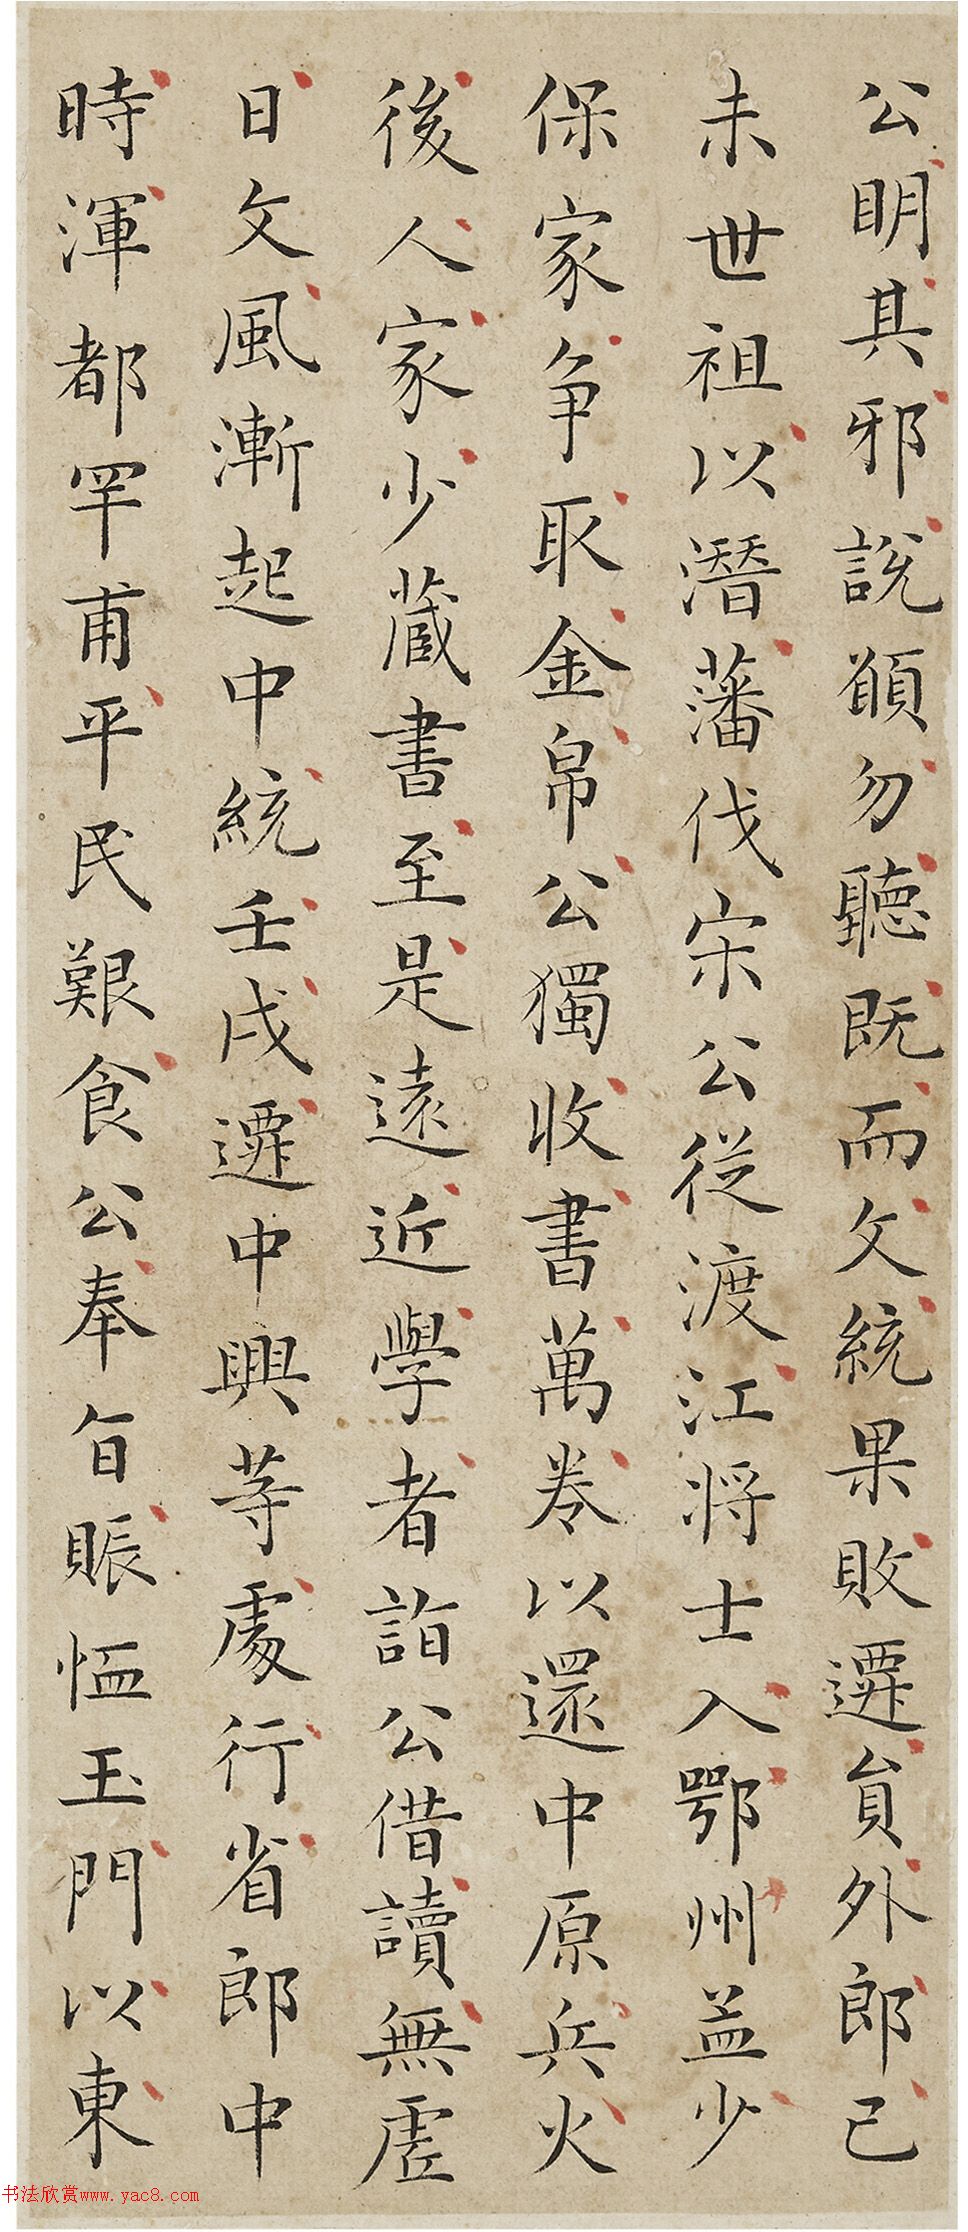 公明其邪說願勿聽既而文統果敗遷貟外郎己
未世祖以潛藩伐宋公從渡江將士入鄂州益少
保家争取金帛公獨收書萬卷以還中原兵火
後人家少藏書至是遠近學者詣公借讀無虛
日文風漸起中統壬戌遷中興等處行省郎中
時渾都罕甫平民艱食公奉旨賑恤玉門以東
书法欣赏www.yac8.com